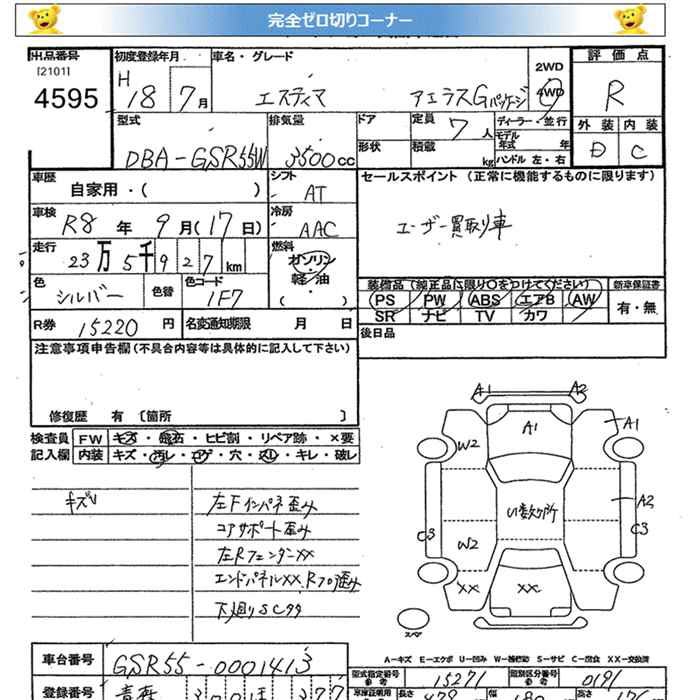 完全ゼロ切りコーナー
出品番号 初度登録年月 車名・グレード 2WD 評価点
[2101] 4595 H 18 7月 エスティマ アエラスGパッケージ 4WD R
型式 排気量 ドア 定員 7人 ディーラー・並行 外装 内装
DBA-GSR55W 3500cc 形状 積載 kg モデル年式 年 ハンドル 左・右 D C
車歴 シフト セールスポイント（正常に機能するものに限ります）
自家用・( ) AT
車検 R8年 9月(17日) 冷房 AAC ユーザー買取り車
走行 23万5千927km 燃料 ガソリン・軽・油 ( )
色 シルバー 色替 色コード 1F7 装備品（純正品に限り○をつけてください） 新車保証書
PS PW ABS エアB AW 有・無
SR ナビ TV カワ
R券 15220円 名変通知期限 月 日 後日品
注意事項申告欄（不具合内容等は具体的に記入して下さい）
修復歴 有 〔箇所 〕
検査員 FW キズ・飛石・ヒビ割・リペア跡・×要
記入欄 内装 キズ・汚レ・コゲ・穴・スレ・キレ・破レ
キズU 左Fインパネ歪み
コアサポート歪み
左RフェンダーXX
エンドパネルXX.Rフロ歪み
下廻りSCササ
A1 A2
A1 A1
W2
A2
U1数ヶ所
C3 C3
W2
XX XX
スペア
A-キズ E-エクボ U-凹み W-補修跡 S-サビ C-腐食 XX-交換済
車台番号 GSR55-0001413 型式指定番号 参考 15271 類別区分番号 参考 0191
登録番号 青森 300 377 長さ 幅 高さ